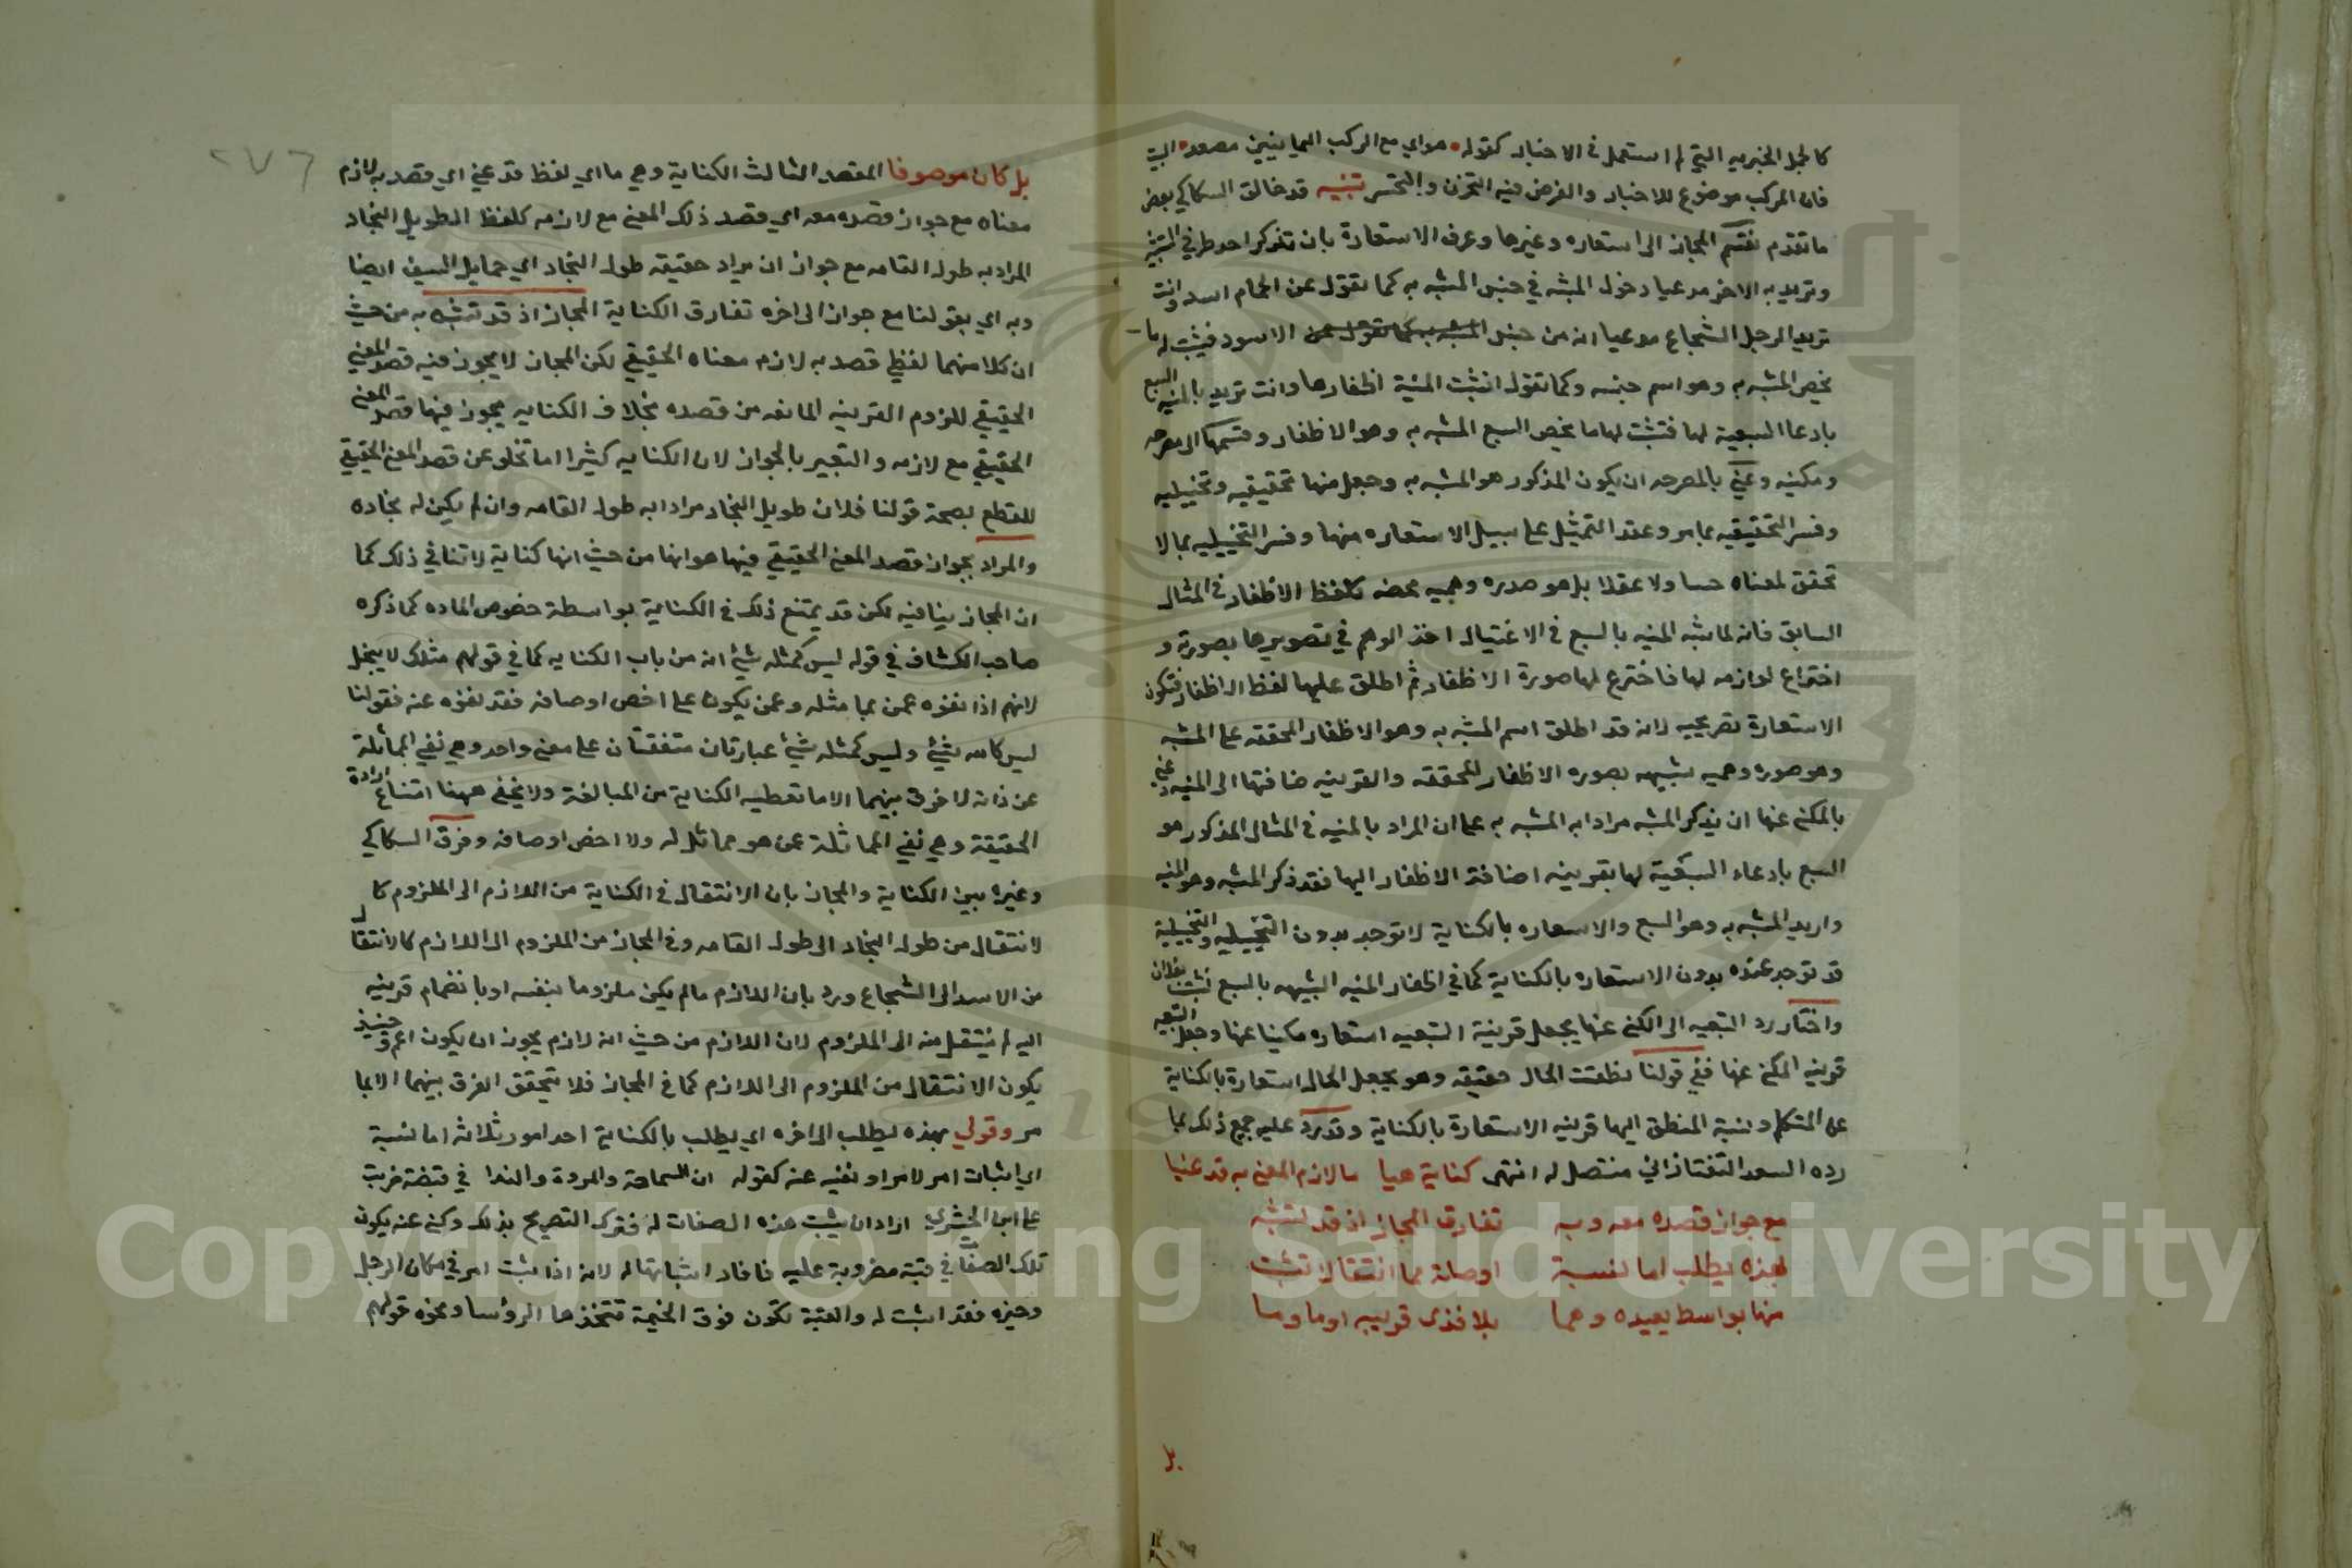 كالجمل الخبريه التي لم استعمل في الاخبار كقوله هواي مع الركب اليمانيين مصعد البيت
فان المركب موضوع للاخبار والغرض فيه التحزن والتحسر تنبيه قد خالف السكاكي بعض
ما تقدم فقسم المجاز الى استعاره وغيرها وعرف الاستعارة بان تذكر احد طرفي التشبيه
وتريد به الاخر مدعيا دخول المشبه في جنس المشبه به كما تقول عن الحمام اسد وانت
تريد الرجل الشجاع مدعيا انه من جنس الاسود فيثبت له ما
يخص المشبه به وهو اسم جنسه وكما تقول انشبت المنية اظفارها وانت تريد بالمنيه السبع
بادعا السبعية لها فتثبت لها ما يخص السبع المشبه به وهو الاظفار وقسمها الى مصرحه
ومكنيه وعني بالمصرحه ان يكون المذكور هو المشبه به وجعل منها تحقيقيه وتخييليه
وفسر التحقيقيه بما مر وعد التمثيل على سبيل الاستعاره منها وفسر التخييليه بما لا
تحقق لمعناه حسا ولا عقلا بل هو صوره وهميه محضه كلفظ الاظفار في المثال
السابق فانه لما شبه المنيه بالسبع في الاغتيال اخذ الوهم في تصويرها بصورته و
اختراع لوازمه لها فاخترع لها صورة الاظفار ثم اطلق عليها لفظ الاظفار فتكون
الاستعارة تصريحيه لانه قد اطلق اسم المشبه به وهو الاظفار المحققه على المشبه
وهو صوره وهميه شبيهه بصوره الاظفار المحققه والقرينه ضافتها الى المنيه وعني
بالمكني عنها ان يذكر المشبه مرادا به المشبه به على ان المراد بالمنيه في المثال المذكور هو
السبع بادعاء السبعية لها بقرينه اضافة الاظفار اليها فقد ذكر المشبه وهو المنيه
واريد المشبه به وهو السبع والاستعاره بالكناية لا توجد بدون التخييليه والتخييلية
قد توجد عنده بدون الاستعاره بالكناية كما في اظفار المنيه الشبيهه بالسبع نشبت بفلان
واختار رد التبعيه الى المكني عنها بجعل قرينة التبعيه استعاره مكنيا عنها وجعل التبعيه
قرينه المكني عنها ففي قولنا نطقت الحال حقيقه وهو يجعل الحال استعارة بالكناية
عن المتكلم ونسبة المنطق اليها قرينه الاستعارة بالكناية وقد رد عليه جميع ذلك بما
رده السعد التفتازاني منتصل له انتهى كناية هيا ما لازم المعنى به قد عنيا
مع جواز قصده معه وبه تفارق المجاز اذ قد تشبه
بهذه يطلب اما نسبة او صلة بما انتقالا تثبت
منها بواسط بعيده وما بلا فذى قريبه اوما وما
بل
٢٧٦
بل كان موصوفا المقصد الثالث الكناية وهي ما اي لفظ قد عني اي قصد به لازم
معناه مع جواز قصده معه اي قصد ذلك المعنى مع لازمه كلفظ الطويل النجاد
المراد به طول القامه مع جواز ان يراد حقيقه طول النجاد اي حمايل السيف ايضا
وبه اي بقولنا مع جواز الى اخره تفارق الكناية المجاز اذ قد تشبه به من حيث
ان كلا منهما لفظ قصد به لازم معناه الحقيقي لكن المجاز لا يجوز فيه قصد المعنى
الحقيقي للزوم القرينه المانعه من قصده بخلاف الكنايه يجوز فيها قصد المعنى
الحقيقي مع لازمه والتعبير بالجواز لان الكنايه كثيرا ما تخلو عن قصد المعنى الحقيقي
للقطع بصحة قولنا فلان طويل النجاد مرادا به طول القامه وان لم يكن له نجاده
والمراد بجواز قصد المعنى الحقيقي فيها هو انها من حيث انها كناية لا تنافي ذلك كما
ان المجاز ينافيه لكن قد يمتنع ذلك في الكناية بواسطة خصوص الماده كما ذكره
صاحب الكشاف في قوله ليس كمثله شئ انه من باب الكنايه كما في قولهم مثلك لا يبخل
لانهم اذا نفوه عمن بما مثله وعمن يكون على اخص اوصافه فقد نفوه عنه فقولنا
ليس كالله شئ وليس كمثله شئ عبارتان متفقتان على معنى واحد وهي نفي المماثلة
عن ذاته لا فرق بينهما الا ما تعطيه الكناية من المبالغة ولا يخفى ههنا امتناع ارادة
الحقيقة وهي نفي المماثلة عن هو مماثل له ولا اخص اوصافه وفرق السكاكي
وغيره بين الكناية والمجاز بان الانتقال في الكناية من اللازم الى الملزوم كا
لانتقال من طول النجاد الى طول القامه وفي المجاز من الملزوم الى اللازم كالانتقال
من الاسد الى الشجاع ورد بان اللازم ما لم يكن ملزوما بنفسه او بانضمام قرينه
اليه لم ينتقل منه الى الملزوم لان اللازم من حيث انه لازم يجوز ان يكون اعم وحينئذ
يكون الانتقال من الملزوم الى اللازم كما في المجاز فلا يتحقق الفرق بينهما الا بما
مر وقولي بهذه يطلب الى اخره اي يطلب بالكناية احد امور ثلاثه اما نسبة
اي اثبات امر لامر او نفيه عنه كقوله ان السماحة والمروة والندا في قبة ضربت
على ابن الحشرج اراد ان يثبت هذه الصفات له فترك التصريح بذلك وكنى عنه بكون
تلك الصفات في قبة مضروبة عليه فافاد اثباتها له لانه اذا اثبت امر في مكان الرجل
وحيزه فقد اثبت له والقبة تكون فوق الخيمة تتخذها الرؤسا ونحوه قولهم
Copyright © King Saud University